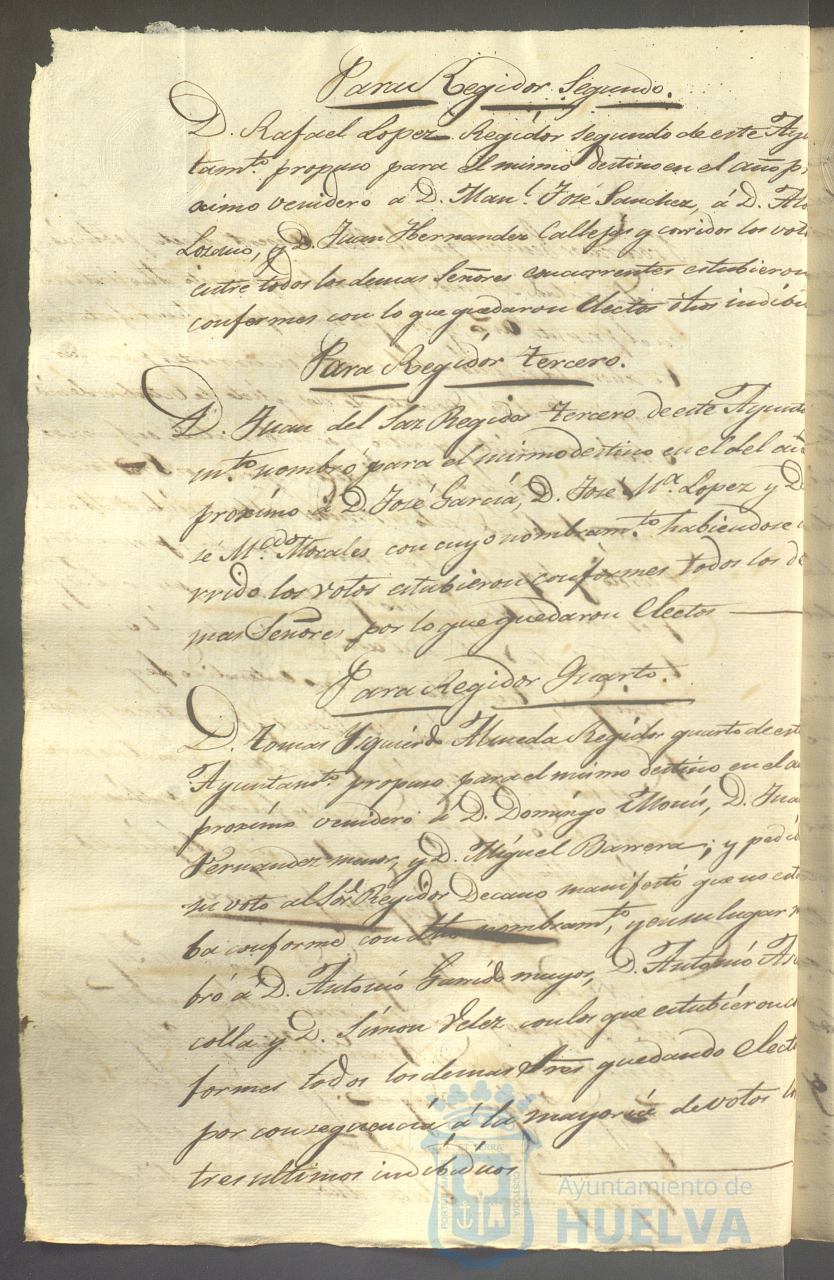 Para Regidor Segundo.
D. Rafael Lopez Regidor segundo de este Ayu
tamto. propuso para el mismo destino en el año pr
ximo venidero á D. Manl. José Sanchez, á D. Al
Lozano, y D. Juan Hernandez Callejas y corridos los vot
entre todos los demas Señores concurrentes estubieron
conformes con lo que quedaron electos dhos indibi
Para Regidor tercero.
D. Juan del Saz Regidor tercero de este Ayunta
mto. nombró para el mismo destino en el del añ
proximo á D. José Garcia, D. José Ma. Lopez y D
sé Morales con cuyo nombramto. habiendose
rrido los votos estubieron conformes todos los de
mas Señores por lo que quedaron electos
Para Regidor Quarto.
D. tomas Ysquierdo Regidor quarto de este
Ayuntamto. propuso para el mismo destino en el a
proximo venidero á D. Domingo D. Jua
Fernandez menor, y D. Miguel Barrera; y pedi
su voto al Sor. Regidor Decano manifestó que no esta
ba conforme con dho nombramto, y en su lugar n
bró á D. Antonio Garrido mayor, D. Antonio As
colla y D. Simon Velez con los que estubieron c
formes todos los demas Sres quedando elect
por consequencia á la mayoria de votos l
tres ultimos indibiduos
Ayuntamiento de
HUELVA